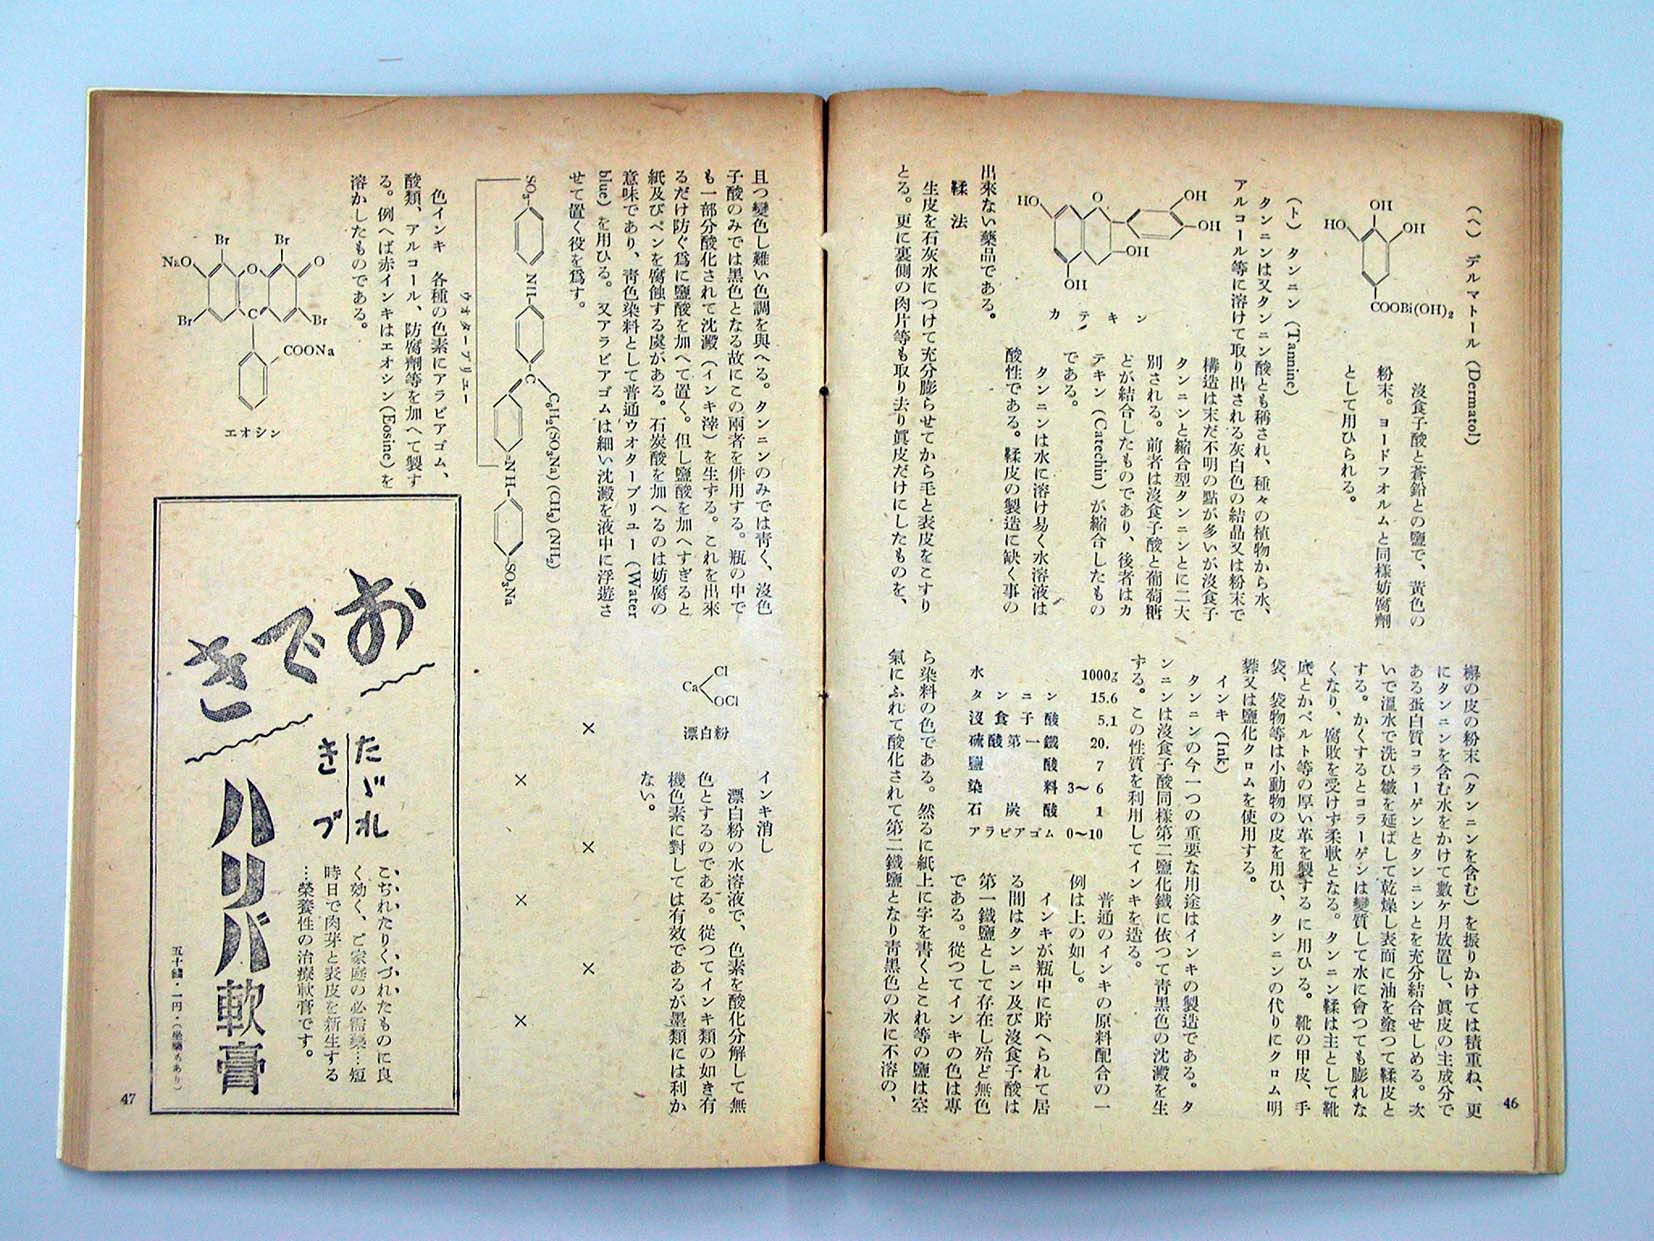 (ヘ) デルマトール (Dermatol)
OH
HO
OH
COOBi(OH)₂
沒食子酸と蒼鉛との鹽で、黃色の
粉末。ヨードフオルムと同樣妨腐劑
として用ひられる。
(ト) タンニン (Tannine)
タンニンは又タンニン酸とも稱され、種々の植物から水、
アルコール等に溶けて取り出される灰白色の結晶又は粉末で
構造は末だ不明の點が多いが沒食子
タンニンと縮合型タンニンとに二大
別される。前者は沒食子酸と葡萄糖
とが結合したものであり、後者はカ
テキン (Catechin) が縮合したもの
である。
HO
O
OH
OH
OH
OH
カテキン
タンニンは水に溶け易く水溶液は
酸性である。鞣皮の製造に缺く事の
出來ない藥品である。
鞣法
生皮を石灰水につけて充分膨らせてから毛と表皮をこすり
とる。更に裏側の肉片等も取り去り眞皮だけにしたものを、
槲の皮の粉末(タンニンを含む)を振りかけては積重ね、更
にタンニンを含む水をかけて數ケ月放置し、眞皮の主成分で
ある蛋白質コラーゲンとタンニンとを充分結合せしめる。次
いで溫水で洗ひ皺を延ばして乾燥し表面に油を塗つて鞣皮と
する。かくするとコラーゲンは變質して水に會つても膨れな
くなり、腐敗を受けず柔軟となる。タンニン鞣は主として靴
底とかベルト等の厚い革を製するに用ひる。靴の甲皮、手
袋、袋物等は小動物の皮を用ひ、タンニンの代りにクロム明
礬又は鹽化クロムを使用する。
インキ (Ink)
タンニンの今一つの重要な用途はインキの製造である。タ
ンニンは沒食子酸同樣第二鹽化鐵に依つて靑黑色の沈澱を生
ずる。この性質を利用してインキを造る。
普通のインキの原料配合の一
例は上の如し。
水 1000g
タンニン 15.6
沒食子酸 5.1
硫酸第一鐵 20.
鹽酸 7
染料 3〜6
石炭酸 1
アラビアゴム 0〜10
インキが瓶中に貯へられて居
る間はタンニン及び沒食子酸は
第一鐵鹽として存在し殆ど無色
である。從つてインキの色は專
ら染料の色である。然るに紙上に字を書くとこれ等の鹽は空
氣にふれて酸化されて第二鐵鹽となり靑黑色の水に不溶の、
46
且つ變色し難い色調を與へる。タンニンのみでは靑く、沒色
子酸のみでは黑色となる故にこの兩者を併用する。瓶の中で
も一部分酸化されて沈澱(インキ滓)を生ずる。これを出來
るだけ防ぐ爲に鹽酸を加へて置く。但し鹽酸を加へすぎると
紙及びペンを腐蝕する虞がある。石炭酸を加へるのは妨腐の
意味であり、靑色染料として普通ウオターブリユー (Water
blue) を用ひる。又アラビアゴムは細い沈澱を液中に浮遊さ
せて置く役を爲す。
SO₃
NH
C
C₆H₂(SO₃Na)(CH₃)(NH₂)
NH
SO₃Na
ウォターブリユー
色インキ 各種の色素にアラビアゴム、
酸類、アルコール、防腐劑等を加へて製す
る。例へば赤インキはエオシン(Eosine)を
溶かしたものである。
Br
Br
NaO
O
O
Br
C
Br
COONa
エオシン
インキ消し
Cl
Ca
OCl
漂白粉
漂白粉の水溶液で、色素を酸化分解して無
色とするのである。從つてインキ類の如き有
機色素に對しては有效であるが墨類には利か
ない。
× × × × × × ×
おでき
たゞれ
きづ
ハリバ軟膏
こぢれたりくづれたものに良
く効く、ご家庭の必需藥…短
時日で肉芽と表皮を新生する
…榮養性の治療軟膏です。
五十錢・一円・(坐藥もあり)
47